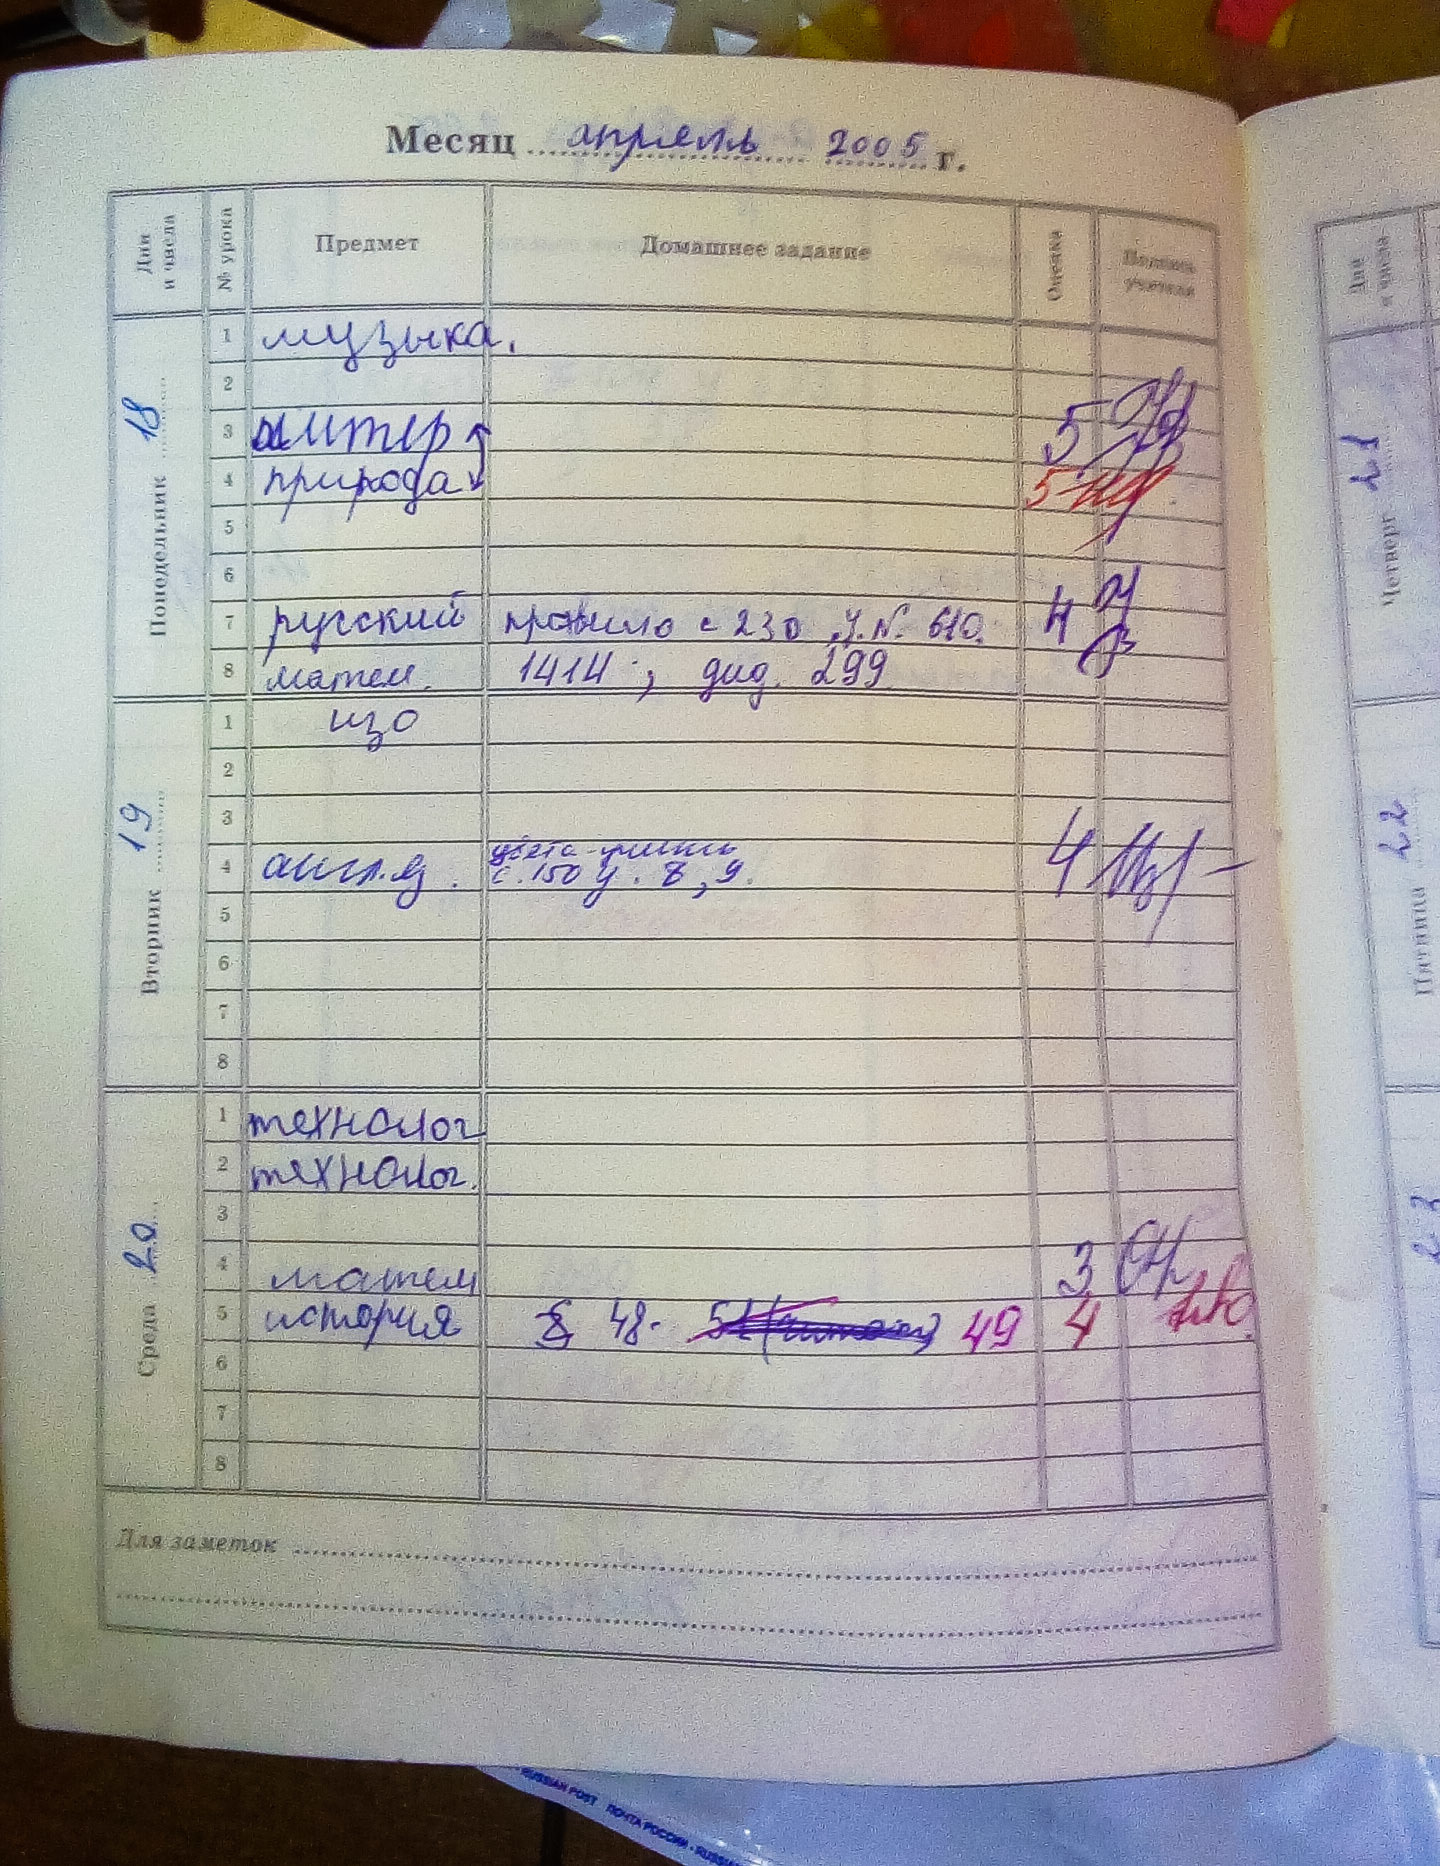 Месяц апрель 2005 г.
Дни и числа № урока Предмет Домашнее задание Оценка Подпись учителя
Понедельник 18
1 музыка.
2
3 литер 5
4 природа 5
5
6
7 русский правило с 230, у.N. 610. 4
8 матем. 1414; дид. 299
Вторник 19
1 изо
2
3
цвета-учить
4 англ.яз. с.150 у. 8, 9. 4
5
6
7
8
Среда 20
1 технолог
2 технолог.
3
4 матем 3
5 история § 48- 49 4
6
7
8
Для заметок
Дни и числа
Четверг 21
Пятница 22
23
RUSSIAN POST ПОЧТА РОССИИ - RUSSIA